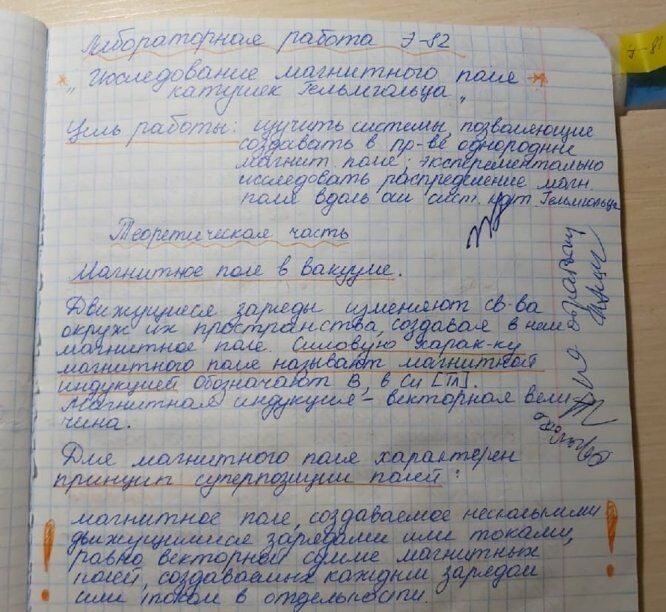 Лабораторная работа Э-82
"Исследование магнитного поля
катушек Гельмгольца"
Цель работы: изучить системы, позволяющие
создавать в пр-ве однородные
магнит. поле; эксперементально
исследовать распределение магн.
поля вдоль оси сист. кат. Гельмгольца
Теоретическая часть
Магнитное поле в вакууме.
Движущиеся заряды изменяют св-ва
окруж их пространства, создавая в нем
магнитное поле. Силовую харак-ку
магнитного поля называют магнитной
индукцией обозначают B, в Си [Тл].
Магнитная индукция - векторная вели
чина.
Для магнитного поля характерен
принцип суперпозиции полей:
магнитное поле, создаваемое несколькими
движущимися зарядами или токами,
равно векторной сумме магнитных
полей, создаваемых каждым зарядом
или током в отдельности.
Э-8